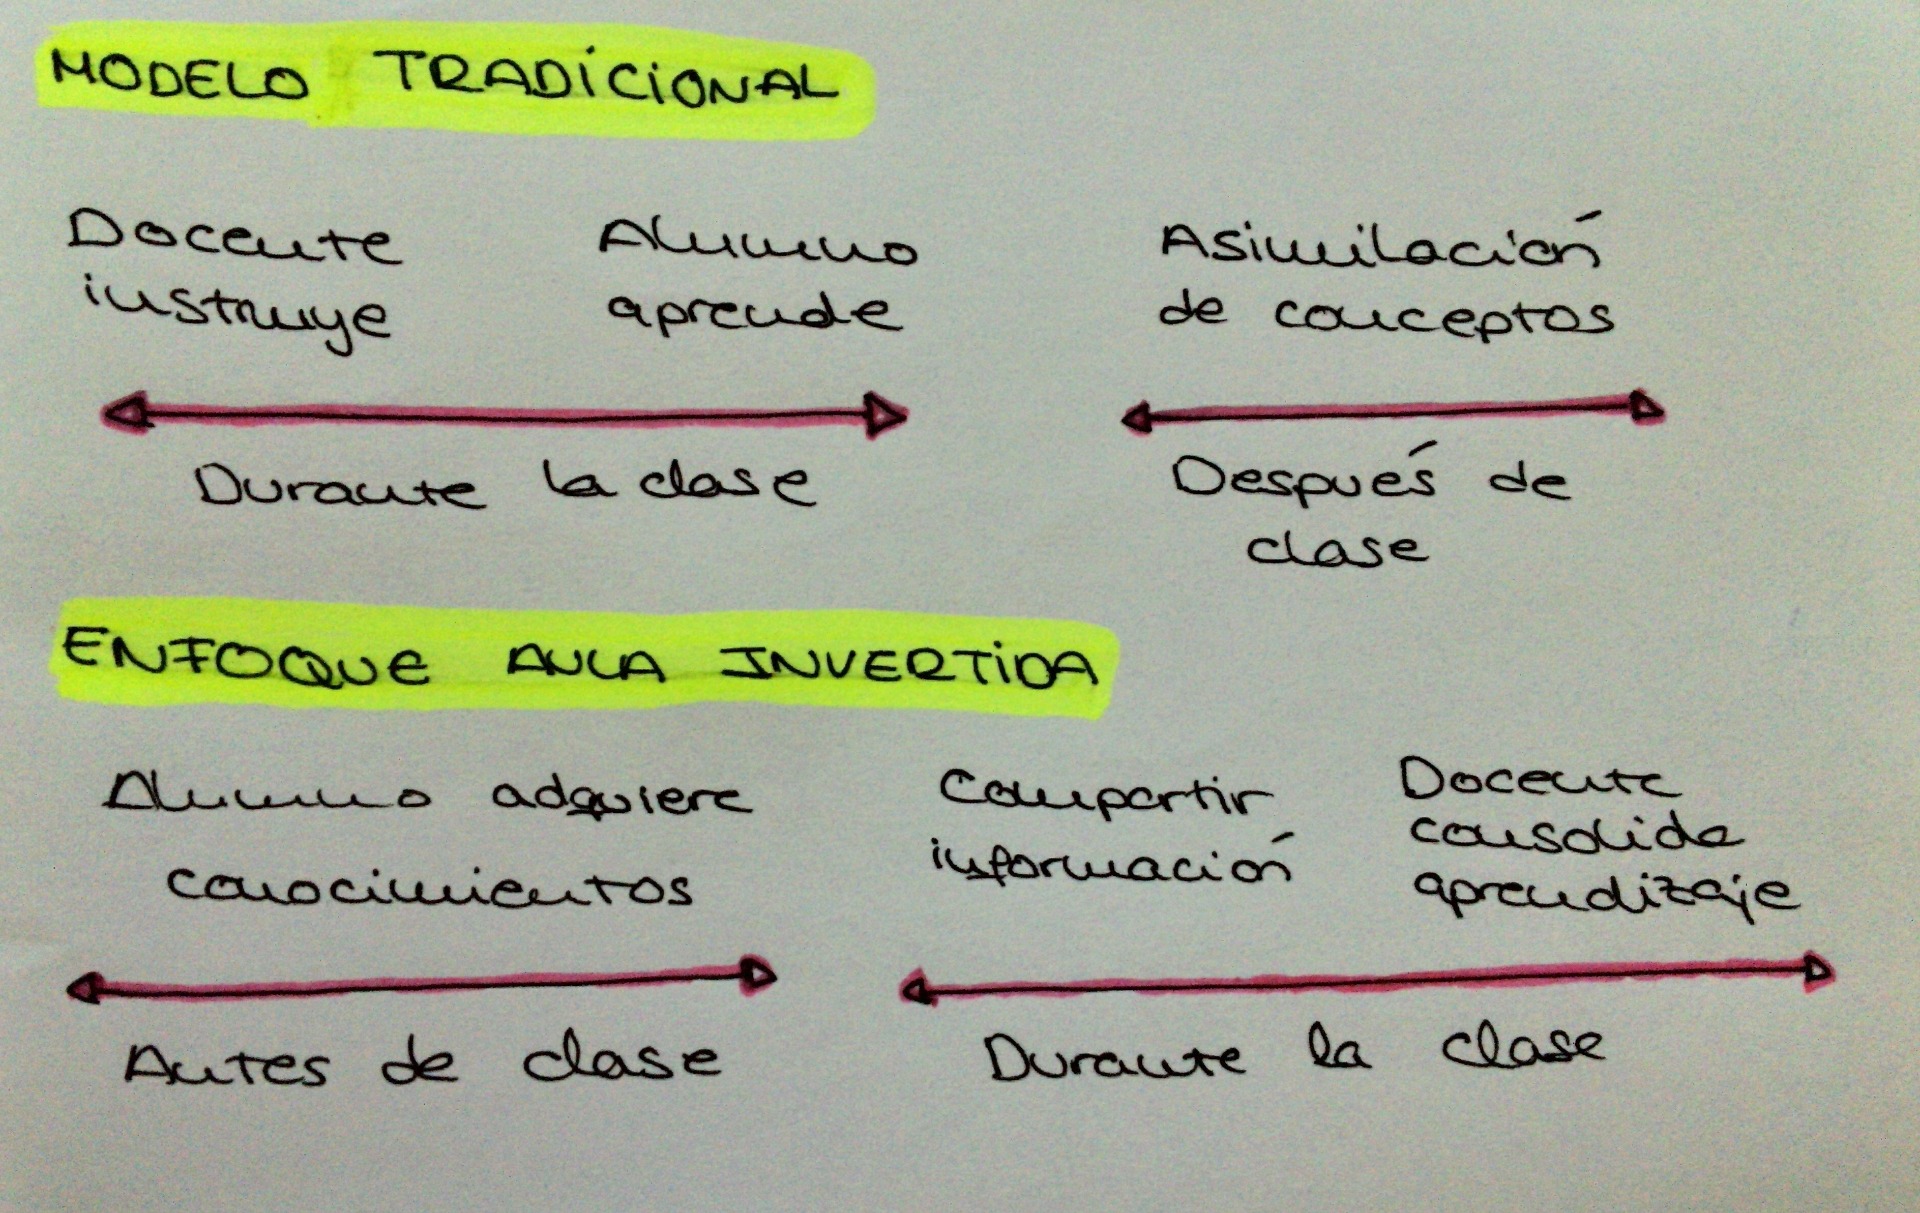 MODELO TRADICIONAL
Docente
instruye
Alumno
aprende
Asimilación
de conceptos
Durante la clase
Después de
clase
ENFOQUE AULA INVERTIDA
Alumno adquiere
conocimientos
Compartir
información
Docente
consolida
aprendizaje
Antes de clase
Durante la clase